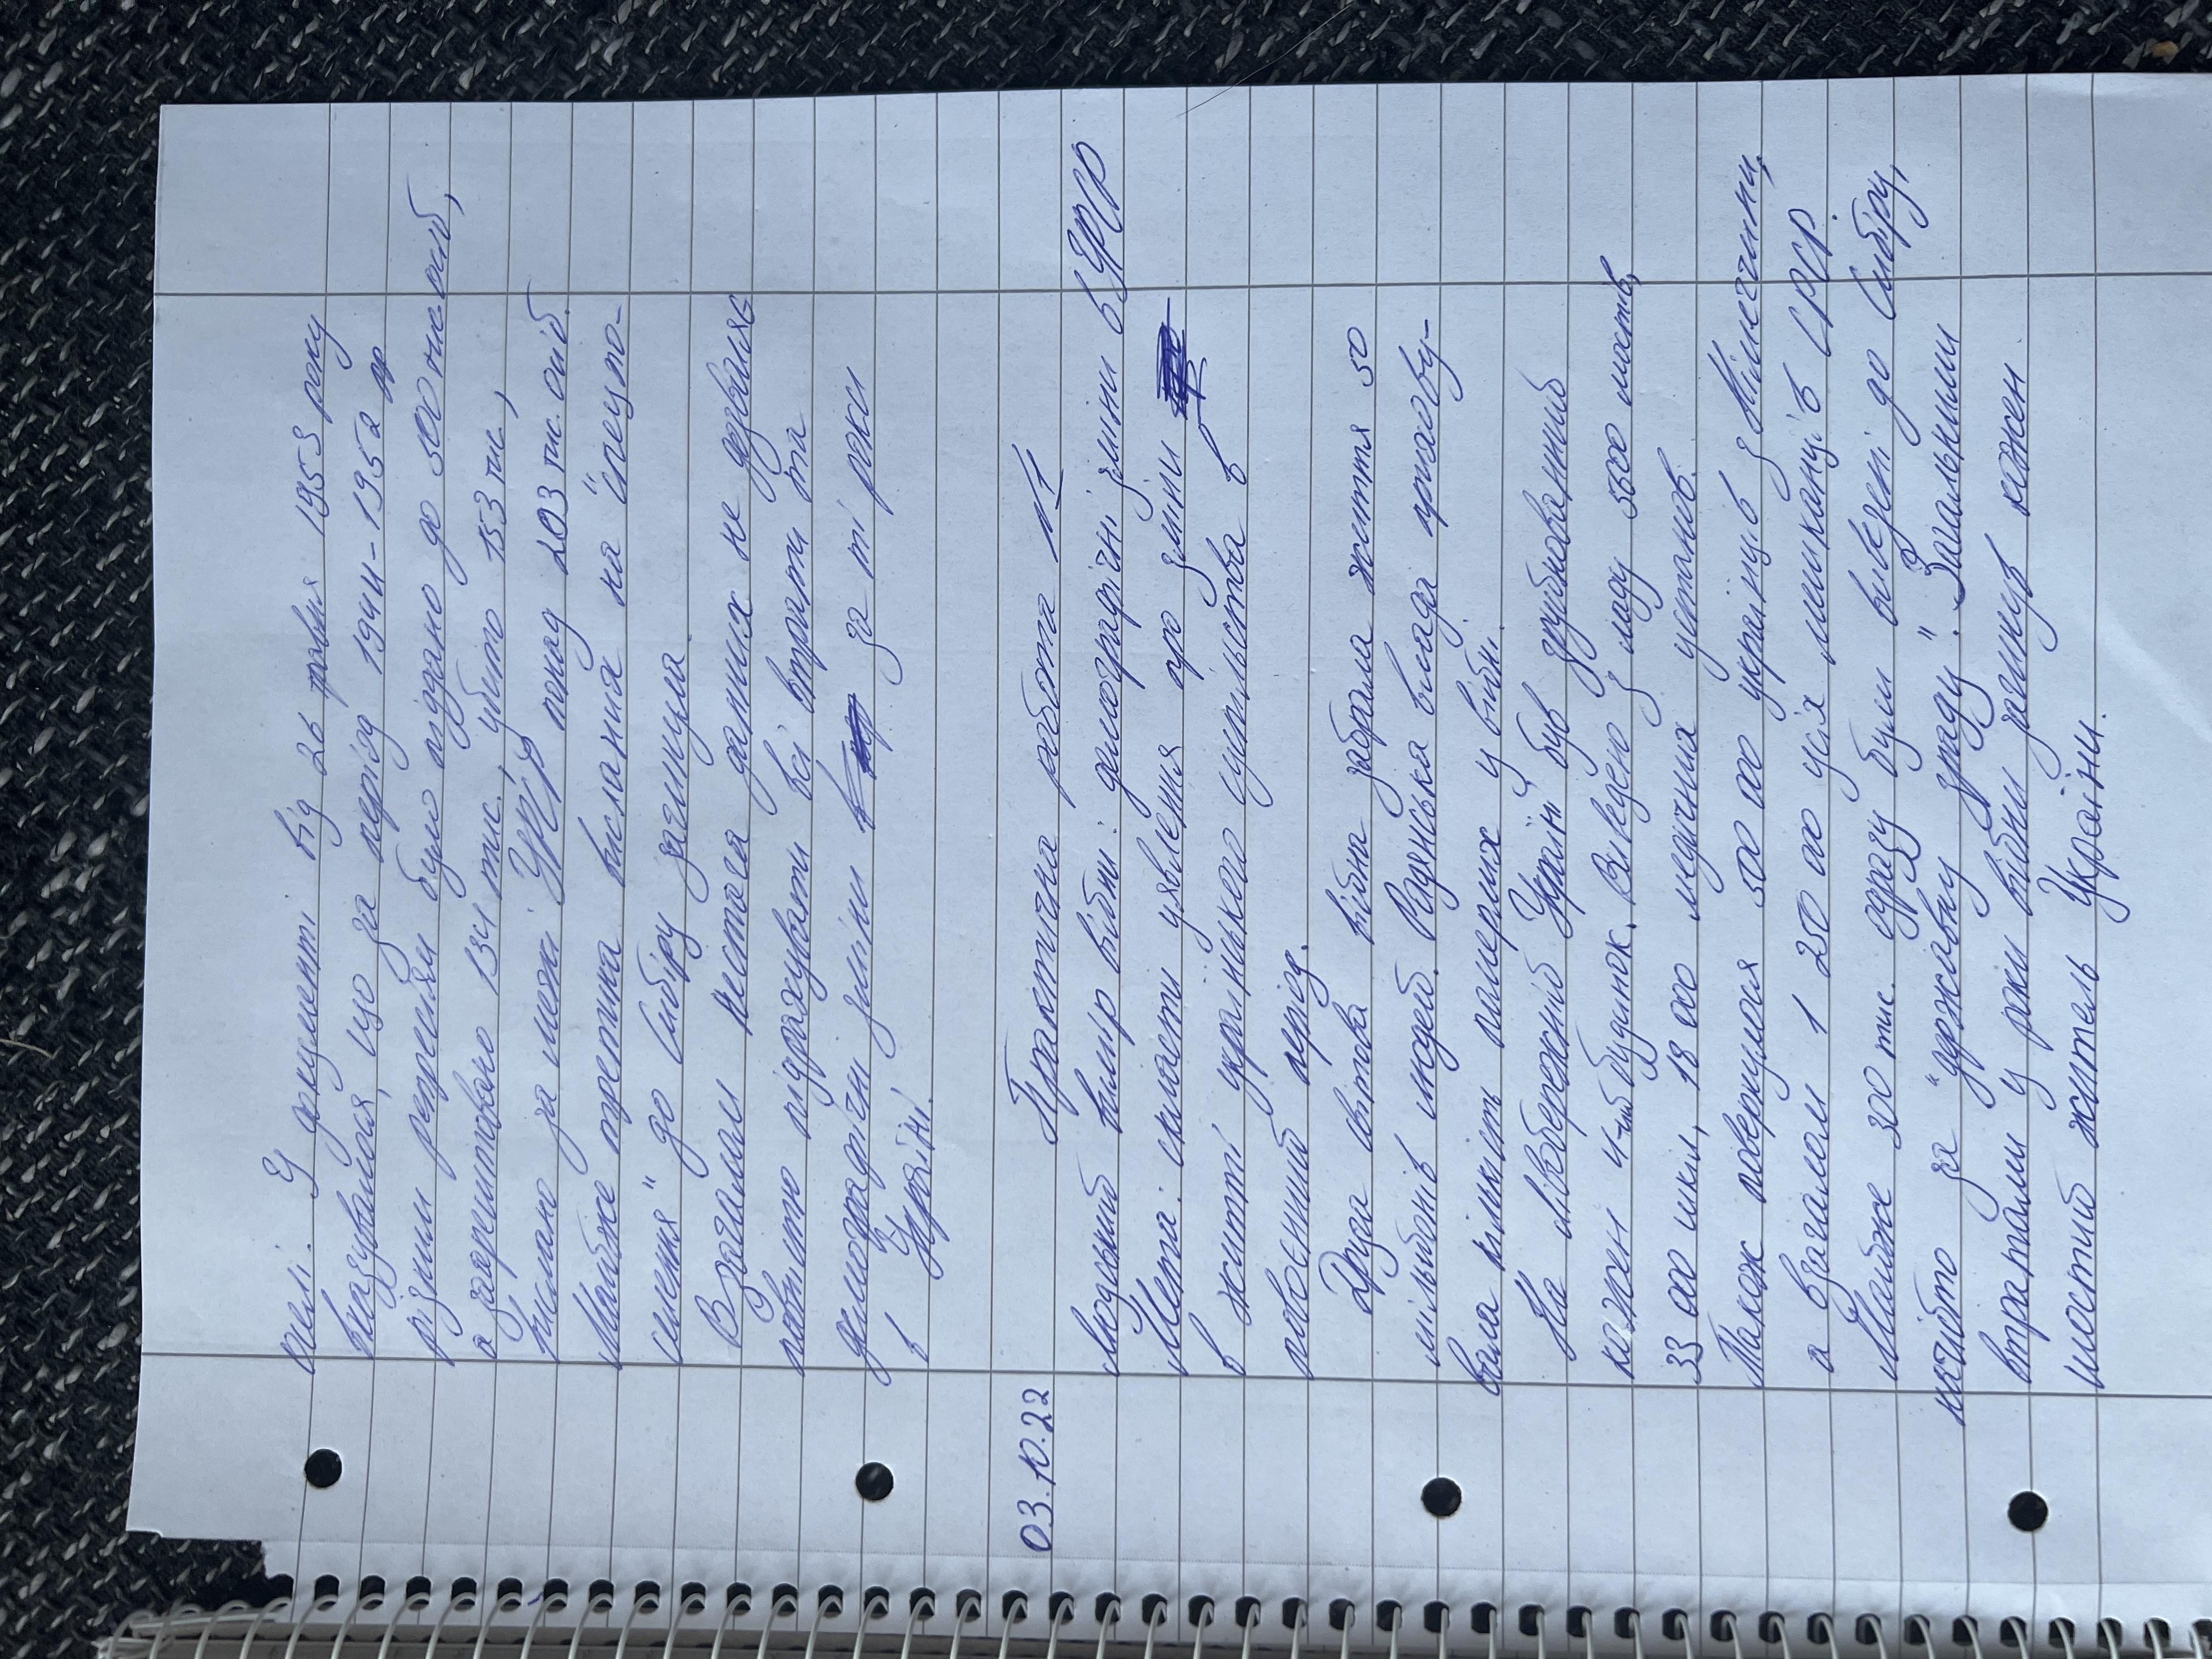 оселі. У документі від 26 травня 1953 року
вказувалося, що за період 1944-1952 рр
різним репресіям було піддано до 500 тис осіб,
а заарештовано 134 тис., убито 153 тис.,
вислано за межі УРСР понад 203 тис. осіб.
Майже третина висланих на "спецпо-
селення" до Сибіру загинула
Взагалом нестача данних не дозволяє
повністю підрахувати всі втрати та
демографічні зміни за ті роки
в Україні.
03.10.22 Практична робота №1
Людський вимір війни: демографічні зміни в УРСР
Мета: скласти уявлення про зміни
в житті українського суспільства в
повоєнний період.
Друга світова війна забрала життя 50
мільйонів людей. Радянська влада приховувала
вала кількість памерлих у війні.
На Лівобережній Україні був зруйнований
кожен 4-ий будинок. Виведено з ладу 5600 мостів,
33 000 шкіл, 18 000 медичних установ.
Також повернулося 500 000 українців з Німеччини,
а взагалом 1 250 000 усіх мешканців СРСР.
Майже 300 тис. одразу були вивезені до Сибіру,
начібто за "державну зраду". Загальними
втратами у роки війни загинув кожен
шостий житель України.